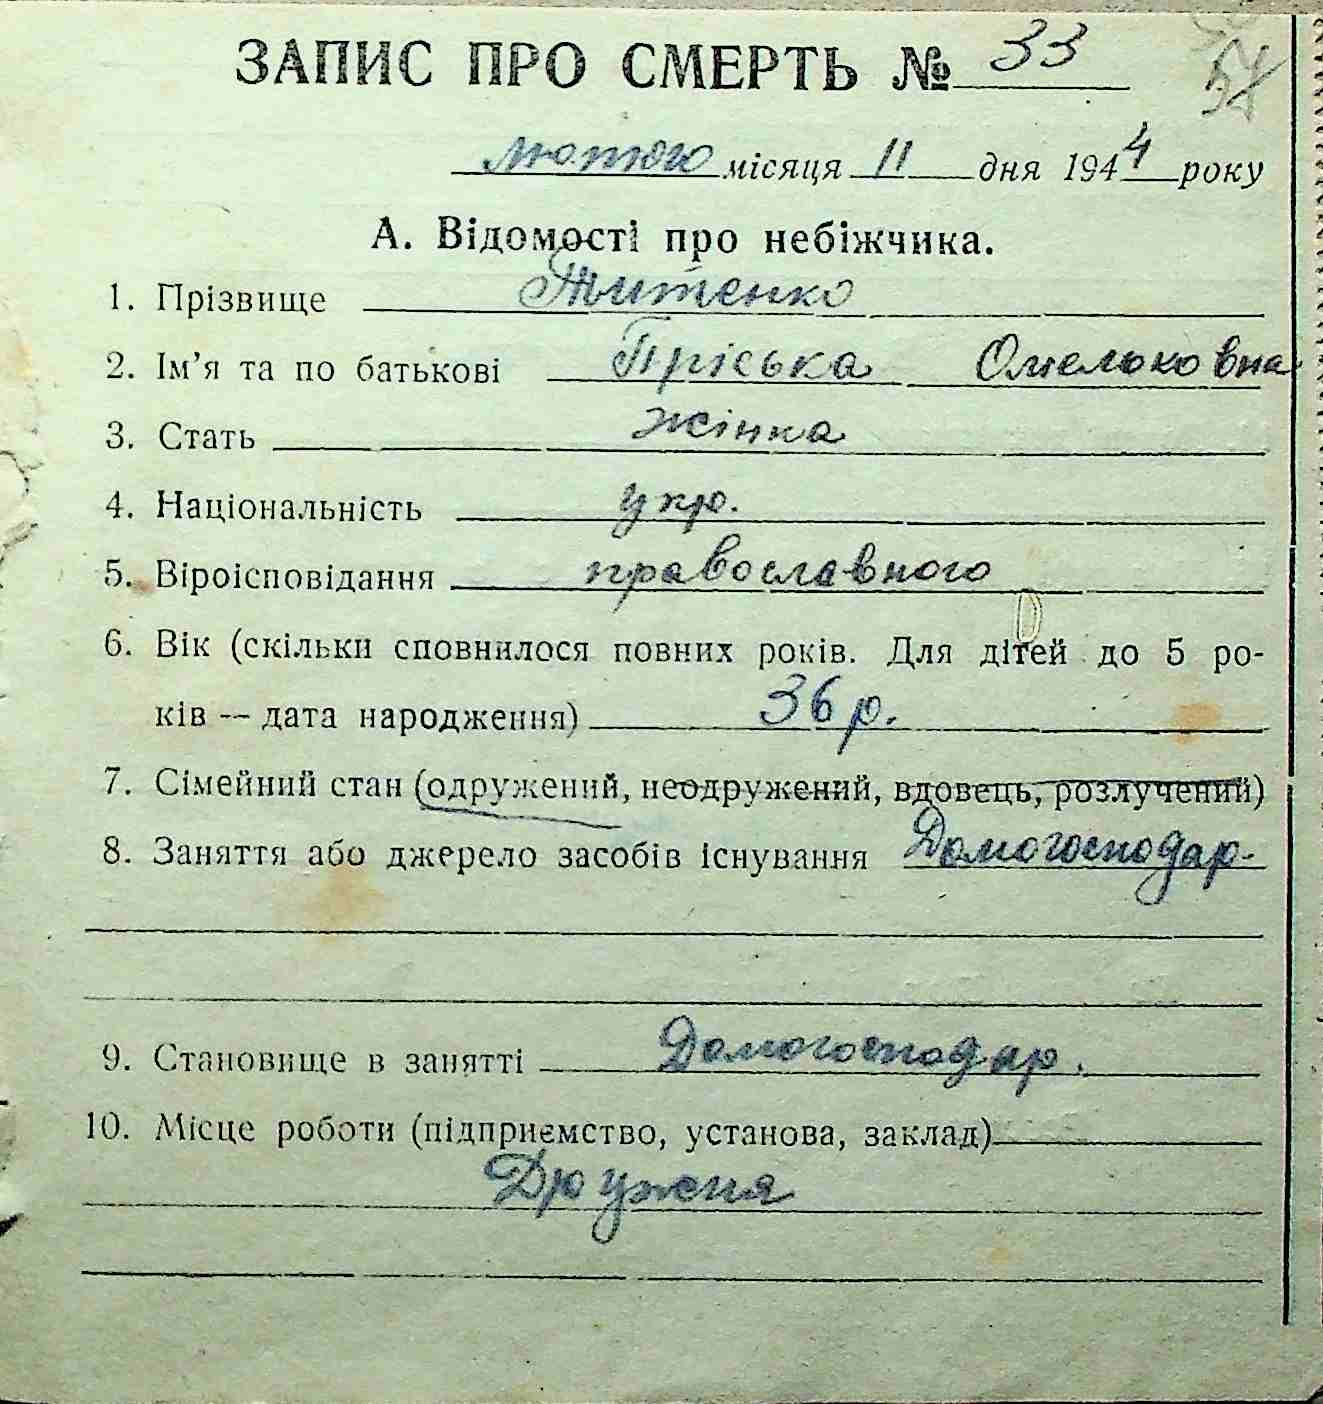 ЗАПИС ПРО СМЕРТЬ № 33
лютого місяця 11 дня 1944 року
А. Відомості про небіжчика.
1. Прізвище Титенко
2. Ім’я та по батькові Пріська Омельковна
3. Стать жінка
4. Національність укр.
5. Віроісповідання православного
6. Вік (скільки сповнилося повних років. Для дітей до 5 ро-
ків — дата народження) 36 р.
7. Сімейний стан (одружений, неодружений, вдовець, розлучений)
8. Заняття або джерело засобів існування Домогосподар-
9. Становище в занятті Домогосподар.
10. Місце роботи (підприємство, установа, заклад)